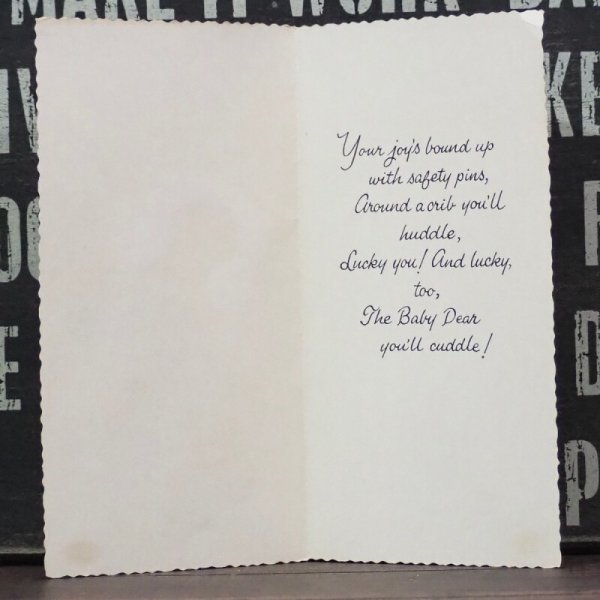 MAKE IT WORK
Your joy's bound up
with safety pins,
Around a crib you'll
huddle,
Lucky you! And lucky,
too,
The Baby Dear
you'll cuddle!